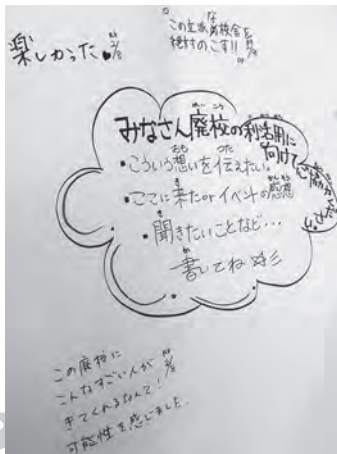 楽しかった♥ 8/8
この立派な校舎を
絶対のこす!!
みなさん廃校の利活用に
向けてご協力下さい
・こういう想いを伝えたい。
・ここに来たorイベントの感想
・聞きたいことなど…
書いてね☆彡
この廃校に
こんなすごい人が
きてくれるなんて!
可能性を感じました。